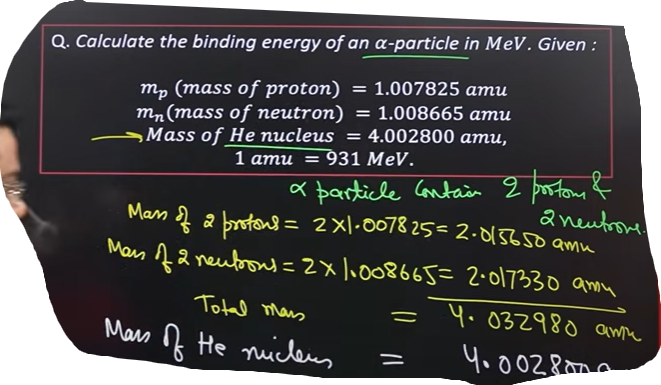 Q. Calculate the binding energy of an α-particle in MeV. Given :
m_p (mass of proton) = 1.007825 amu
m_n(mass of neutron) = 1.008665 amu
Mass of He nucleus = 4.002800 amu,
1 amu = 931 MeV.
α particle Contain 2 protons &
2 neutrons.
Mass of 2 protons = 2×1.007825 = 2.015650 amu
Mass of 2 neutrons = 2×1.008665 = 2.017330 amu
Total mass = 4.032980 amu
Mass of He nucleus = 4.002800